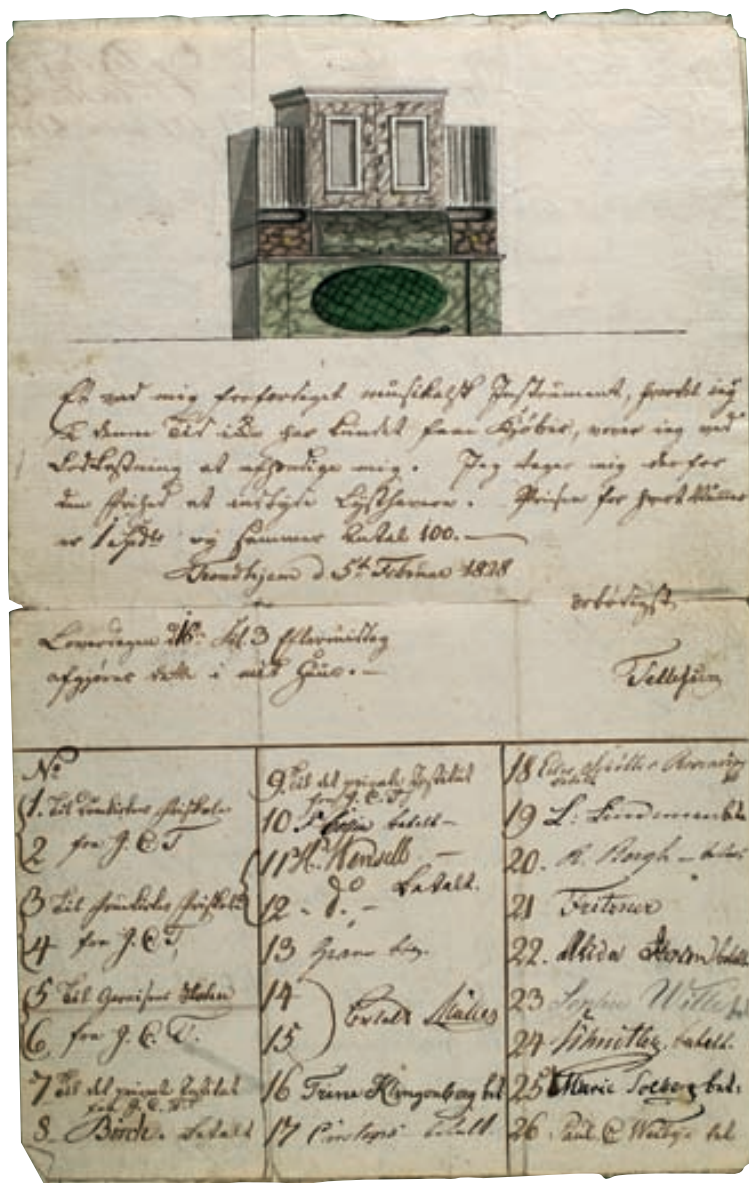 Et ved mig forfærdiget musikalsk Instrument, hvortil jeg
til denne Tid ikke har kundet faae Kjöber, vover jeg ved
Lodkastning at afhændige mig. Jeg tager mig derfor
den Frihed at indbyde Lysthavere. Prisen for hvert Nummer
er 1 Spd og Summens Antal 100.
Trondhjem d 5te Februar 1828
ærbödigst
Löverdagen d 16 Kl. 3 Eftermiddag
afgjöres dette i mit Huus.
Tellefsen
No
1. Til Domkirkens Friskole
2 fra J. C. T
3 Til Fruekirkes Friskole
4 fra J. C. T.
5 Til Garnisons Skolen
6 fra J. C. T.
7 Til det private Institut
fra J. C. T.
8 Birch. betalt
9 Til det private Institut
fra J. C. T.
10 betalt
11 H. Wensell
do betalt.
12 - d. -
13 Gram
14
15 Müller
16 Trine Klingenberg bet
17 betalt
18
19 L: Lindeman
20. R. Bergh
21 Fritzner
22. Alida betalt
23 Wille
24 Schnitler. betalt.
25 Marie Solberg bet.
26. Paul C Weibye bet